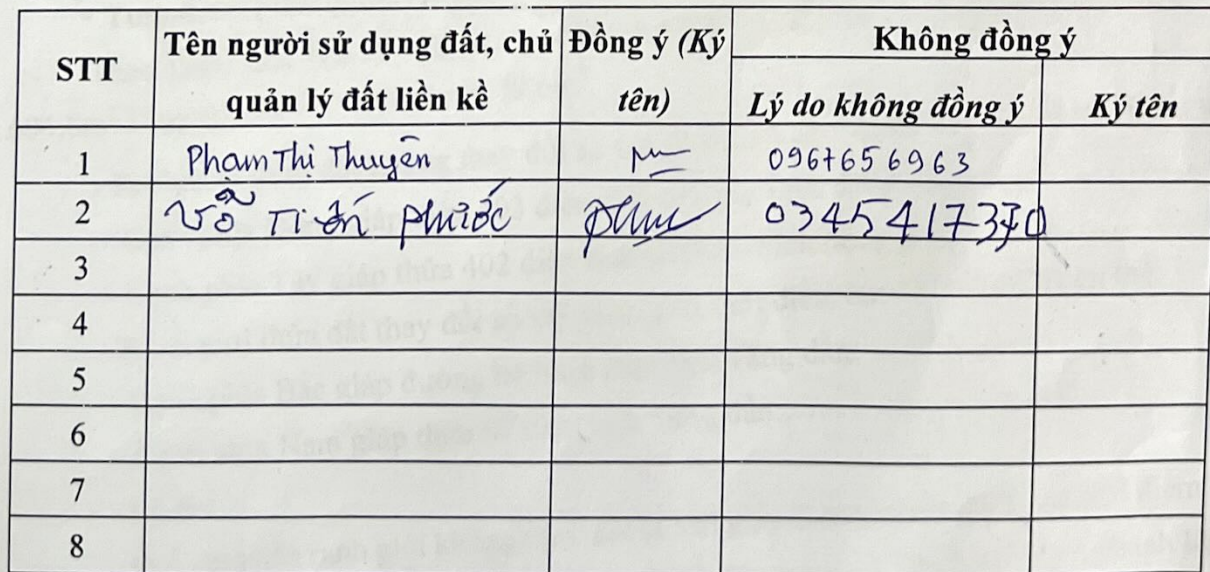 STT
Tên người sử dụng đất, chủ quản lý đất liền kề
Đồng ý (Ký tên)
Không đồng ý
Lý do không đồng ý
Ký tên
1 Phạm Thị Thuyên 0967656963
2 Võ Tiến Phước 0345417370
3
4
5
6
7
8